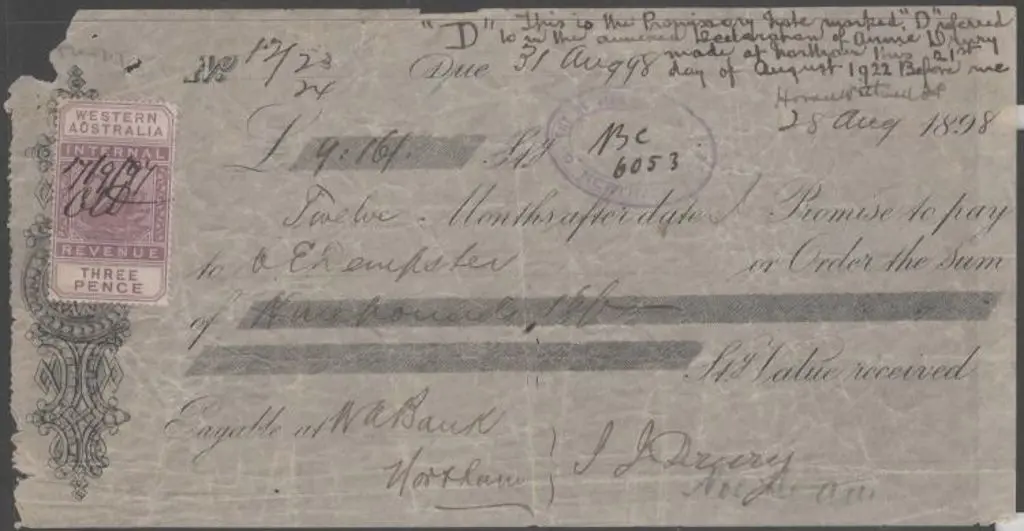 "D" This is the Promissory Note marked "D" referred
to in the annexed Declaration of Annie Drury
made at Northam this 21st
day of August 1922 Before me
No 12/23
24
Due 31 Aug 98
28 Aug 1898
WESTERN
AUSTRALIA
INTERNAL
17/9/97
REVENUE
THREE
PENCE
£ 9:16/- Stg
BC
6053
Twelve Months after date I Promise to pay
to O E Dempster or Order the Sum
of Nine pounds, 16/-
Stg Value received
Payable at WA Bank
Northam
J J Drury
Northam